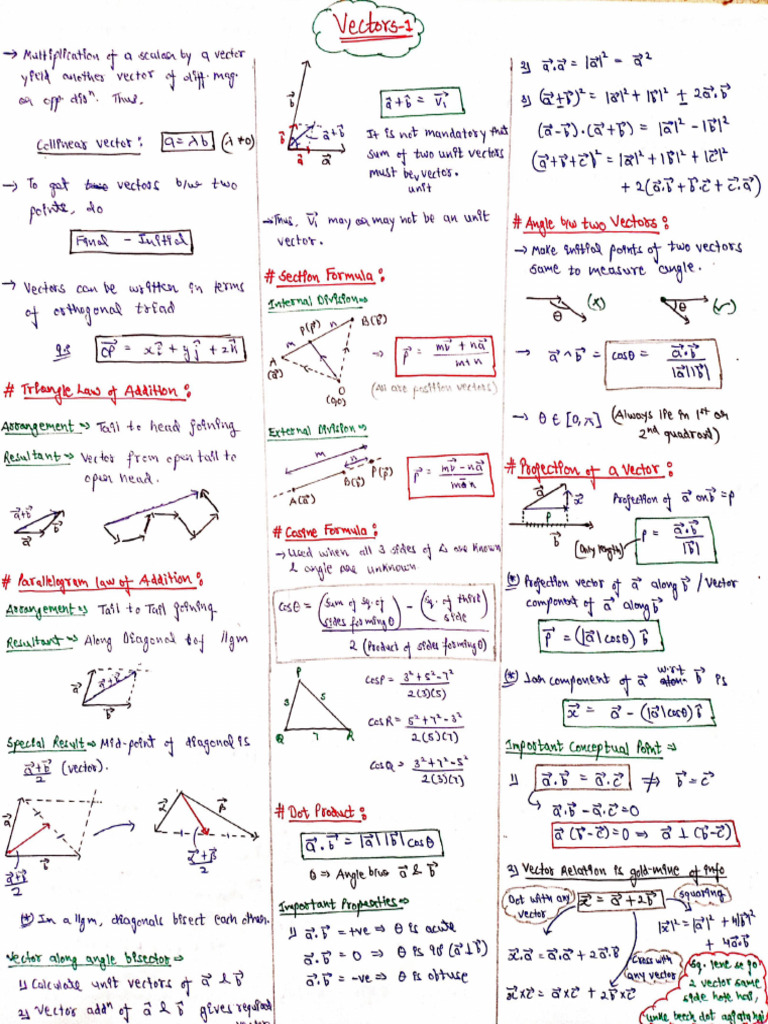 Vectors-1
→ Multiplication of a scalar by a vector
yield another vector of diff. mag.
or opp disⁿ. Thus,
Collinear vector: a = λb (λ≠0)
→ To get vectors b/w two
points, do
Final - Initial
→ Vectors can be written in terms
of orthogonal triad
OP = xî + yĵ + zk̂
# Triangle Law of Addition:
Arrangement → Tail to head joining
Resultant → Vector from open tail to
open head.
a⃗+b⃗
a⃗
b⃗
# Parallelogram law of Addition:
Arrangement → Tail to Tail joining
Resultant → Along Diagonal of llgm
a⃗
a⃗+b⃗
b⃗
Special Result → Mid-point of diagonal is
a⃗+b⃗/2 (vector).
a⃗
b⃗
a⃗+b⃗/2
α⃗
β⃗
α⃗+β⃗/2
(*) In a llgm, diagonals bisect each other.
Vector along angle bisector →
1) Calculate unit vectors of a⃗ & b⃗
2) Vector addⁿ of â & b̂ gives required
b⃗
b̂
â+b̂
â
a⃗
â + b̂ = V⃗₁
It is not mandatory that
sum of two unit vectors
must be vector.
unit
→ Thus, V⃗₁ may or may not be an unit
vector.
# Section Formula:
Internal Division →
m
P(p⃗)
n
B(b⃗)
A
(a⃗)
O
(0,0)
⇒ p⃗ = mb⃗ + na⃗ / m+n
(All are position vectors)
External Division →
m
n
P(p⃗)
B(b⃗)
A(a⃗)
p⃗ = mb⃗ - na⃗ / m-n
# Cosine Formula:
→ Used when all 3 sides of Δ are known
& angle are unknown.
cosθ = (Sum of sq. of sides forming θ) - (Sq. of third side)
2 (Product of sides forming θ)
P
3
5
Q
7
R
cosP = 3²+5²-7² / 2(3)(5)
cosR = 5²+7²-3² / 2(5)(7)
cosQ = 3²+7²-5² / 2(3)(7)
# Dot Product:
a⃗.b⃗ = |a⃗||b⃗|cosθ
θ ⇒ Angle b/w a⃗ & b⃗
Important Properties →
1) a⃗.b⃗ = +ve ⇒ θ is acute
a⃗.b⃗ = 0 ⇒ θ is 90° (a⃗⊥b⃗)
a⃗.b⃗ = -ve ⇒ θ is obtuse
2) a⃗.a⃗ = |a⃗|² = a⃗²
3) (a⃗±b⃗)² = |a⃗|² + |b⃗|² ± 2a⃗.b⃗
(a⃗-b⃗).(a⃗+b⃗) = |a⃗|² - |b⃗|²
(a⃗+b⃗+c⃗)² = |a⃗|² + |b⃗|² + |c⃗|²
+ 2(a⃗.b⃗ + b⃗.c⃗ + c⃗.a⃗)
# Angle b/w two Vectors:
→ Make initial points of two vectors
same to measure angle.
θ (×)
θ (✓)
→ a⃗^b⃗ = cosθ = a⃗.b⃗ / |a⃗||b⃗|
→ θ ∈ [0,π] (Always lie in 1st or
2nd quadrant)
# Projection of a vector:
a⃗
x⃗
P
b⃗
Projection of a⃗ on b⃗ = p
(Only length)
p = a⃗.b⃗ / |b⃗|
(*) Projection vector of a⃗ along b⃗ / Vector
component of a⃗ along b⃗
p⃗ = (|a⃗|cosθ) b̂
w.r.t
(*) ⊥ar component of a⃗ b⃗ is
x⃗ = a⃗ - (|a⃗|cosθ)b̂
Important Conceptual Point →
1) a⃗.b⃗ = a⃗.c⃗ ⇏ b⃗ = c⃗
a⃗.b⃗ - a⃗.c⃗ = 0
a⃗(b⃗-c⃗) = 0 ⇒ a⃗ ⊥ (b⃗-c⃗)
2) Vector Relation is gold-mine of info
Dot with any
vector
x⃗ = a⃗ + 2b⃗
squaring
|x⃗|² = |a⃗|² + 4|b⃗|²
+ 4a⃗.b⃗
x⃗.a⃗ = a⃗.a⃗ + 2a⃗.b⃗
Cross with
any vector
x⃗×c⃗ = a⃗×c⃗ + 2b⃗×c⃗
Sq. lene se jo
2 vector same
side hote hai,
unke beech dot